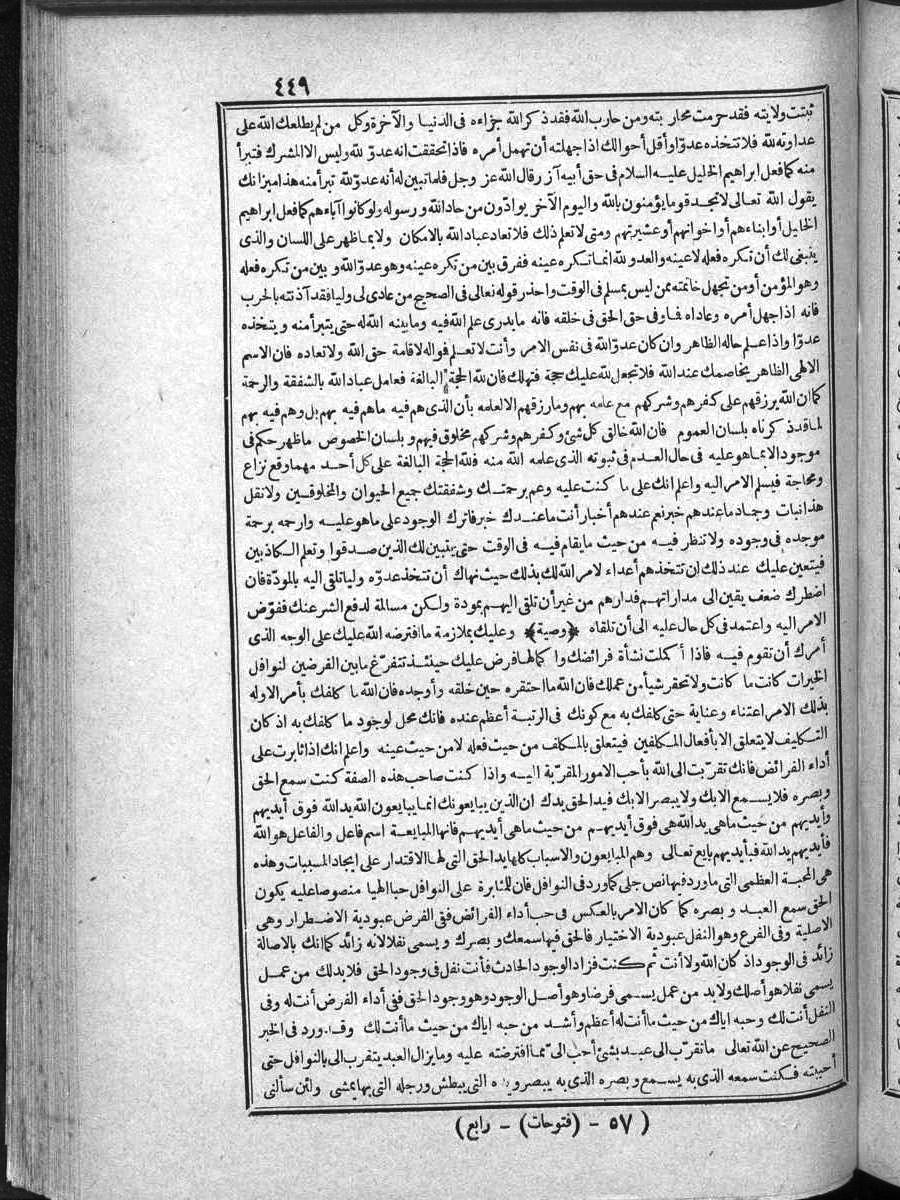 ٤٤٩
ثبتت ولايته فقد حرمت محاربته ومن حارب الله فقد ذكر الله جزاءه فى الدنيا والآخرة وكل من لم يطلعك الله على
عداوته لله فلا تتخذه عدوّا وأقل أحوالك اذا جهلته أن تهمل أمره فاذا تحققت انه عدوّ لله وليس الا المشرك فتبرأ
منه كما فعل ابراهيم الخليل عليه السلام فى حق أبيه آزر قال الله عز وجل فلما تبين له أنه عدوّ لله تبرأ منه هذا ميزانك
يقول الله تعالى لا تجد قوما يؤمنون بالله واليوم الآخر يوادّون من حاد الله ورسوله ولو كانوا آباءهم كما فعل ابراهيم
الخليل أو ابناءهم أو اخوانهم أو عشيرتهم ومتى لا تعلم ذلك فلا تعاد عباد الله بالامكان ولا بما ظهر على اللسان والذى
ينبغى لك أن تكره فعله لا عينه والعدو لله انما تكره عينه ففرق بين من تكره عينه وهو عدوّ الله وبين من تكره فعله
وهو المؤمن أو من تجهل خاتمته ممن ليس بمسلم فى الوقت واحذر قوله تعالى فى الصحيح من عادى لى وليا فقد آذنته بالحرب
فانه اذا جهل أمره وعاداه فما وفى حق الحق فى خلقه فانه ما يدرى علم الله فيه وما بينه الله له حتى يتبرأ منه ويتخذه
عدوّا واذا علم حاله الظاهر وان كان عدوّ الله فى نفس الامر وأنت لا تعلم فواله لاقامة حق الله ولا تعاده فان الاسم
الالهى الظاهر يخاصمك عند الله فلا تجعل لله عليك حجة فتهلك فان لله الحجة البالغة فعامل عباد الله بالشفقة والرحمة
كما ان الله يرزقهم على كفرهم وشركهم مع علمه بهم وما رزقهم الا لعلمه بأن الذى هم فيه ما هم فيه بهم بل وهم فيه بهم
لما قد ذكرناه بلسان العموم فان الله خالق كل شئ وكفرهم وشركهم مخلوق فيهم وبلسان الخصوص ما ظهر حكم فى
موجود الا بما هو عليه فى حال العدم فى ثبوته الذى علمه الله منه فلله الحجة البالغة على كل أحد مهما وقع نزاع
ومحاجة فيسلم الامر اليه واعلم انك على ما كنت عليه وعم برحمتك وشفقتك جميع الحيوان والمخلوقين ولا تقل
هذا نبات وجماد ما عندهم خبر نعم عندهم أخبار أنت ما عندك خبر فاترك الوجود على ما هو عليه وارحمه برحمة
موجده فى وجوده ولا تنظر فيه من حيث ما يقام فيه فى الوقت حتى يتبين لك الذين صدقوا وتعلم الكاذبين
فيتعين عليك عند ذلك ان تتخذهم أعداء لامر الله لك بذلك حيث نهاك أن تتخذ عدوّه وليا تلقى اليه بالمودّة فان
اضطرك ضعف يقين الى مداراتهم فدارهم من غير أن تلقى اليهم بمودة ولكن مسالمة لدفع الشر عنك ففوّض
الامر اليه واعتمد فى كل حال عليه الى أن تلقاه ﴿وصية﴾ وعليك بملازمة ما افترضه الله عليك على الوجه الذى
أمرك أن تقوم فيه فاذا أكملت نشأة فرائضك واكمالها فرض عليك حينئذ تتفرّغ ما بين الفرضين لنوافل
الخيرات كانت ما كانت ولا تحقر شيأ من عملك فان الله ما احتقره حين خلقه وأوجده فان الله ما كلفك بأمر الا وله
بذلك الامر اعتناء وعناية حتى كلفك به مع كونك فى الرتبة أعظم عنده فانك محل لوجود ما كلفك به اذ كان
التكليف لا يتعلق الا بأفعال المكلفين فيتعلق بالمكلف من حيث فعله لا من حيث عينه واعلم انك اذا ثابرت على
أداء الفرائض فانك تقرّبت الى الله بأحب الامور المقرّبة اليه واذا كنت صاحب هذه الصفة كنت سمع الحق
وبصره فلا يسمع الا بك ولا يبصر الا بك فيد الحق يدك ان الذين يبايعونك انما يبايعون الله يد الله فوق أيديهم
وأيديهم من حيث ما هى يد الله هى فوق أيديهم من حيث ما هى أيديهم فانها المبايعة اسم فاعل والفاعل هو الله
فأيديهم يد الله فبأيديهم بايع تعالى وهم المبايعون والاسباب كلها يد الحق التى لها الاقتدار على ايجاد المسببات وهذه
هى المحبة العظمى التى ما ورد فيها نص جلى كما ورد فى النوافل فان للمثابرة على النوافل حبا الهيا منصوصا عليه يكون
الحق سمع العبد وبصره كما كان الامر بالعكس فى حب أداء الفرائض ففى الفرض عبودية الاضطرار وهى
الاصلية وفى الفرع وهو النفل عبودية الاختيار فالحق فيها سمعك وبصرك ويسمى نفلا لانه زائد كما انك بالاصالة
زائد فى الوجود اذ كان الله ولا أنت ثم كنت فزاد الوجود الحادث فأنت نفل فى وجود الحق فلا بد لك من عمل
يسمى نفلا هو أصلك ولا بد من عمل يسمى فرضا وهو أصل الوجود وهو وجود الحق ففى أداء الفرض أنت له وفى
النفل أنت لك وحبه اياك من حيث ما أنت له أعظم وأشد من حبه اياك من حيث ما أنت لك وقد ورد فى الخبر
الصحيح عن الله تعالى ما تقرّب الى عبد بشئ أحب الىّ مما افترضته عليه وما يزال العبد يتقرب الى بالنوافل حتى
أحببته فكنت سمعه الذى به يسمع وبصره الذى به يبصر ويده التى يبطش ورجله التى بها يمشى ولئن سألنى
( ٥٧ - (فتوحات) - رابع )